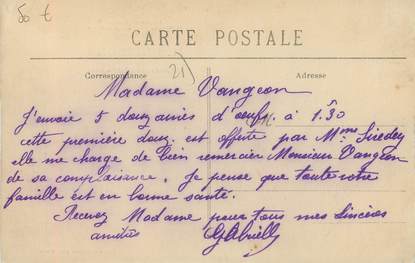 50 €
CARTE POSTALE
21)
Correspondance
Adresse
Madame Vangeon
J'envoie 5 douzaines d'oeufs. à 1.30
cette première douz. est offerte par Mme Siredey
elle me charge de bien remercier Monsieur Vangeon
de sa complaisance, je pense que toute votre
famille est en bonne santé.
Recevez Madame pour tous mes sincères
amitiés Gabrielle